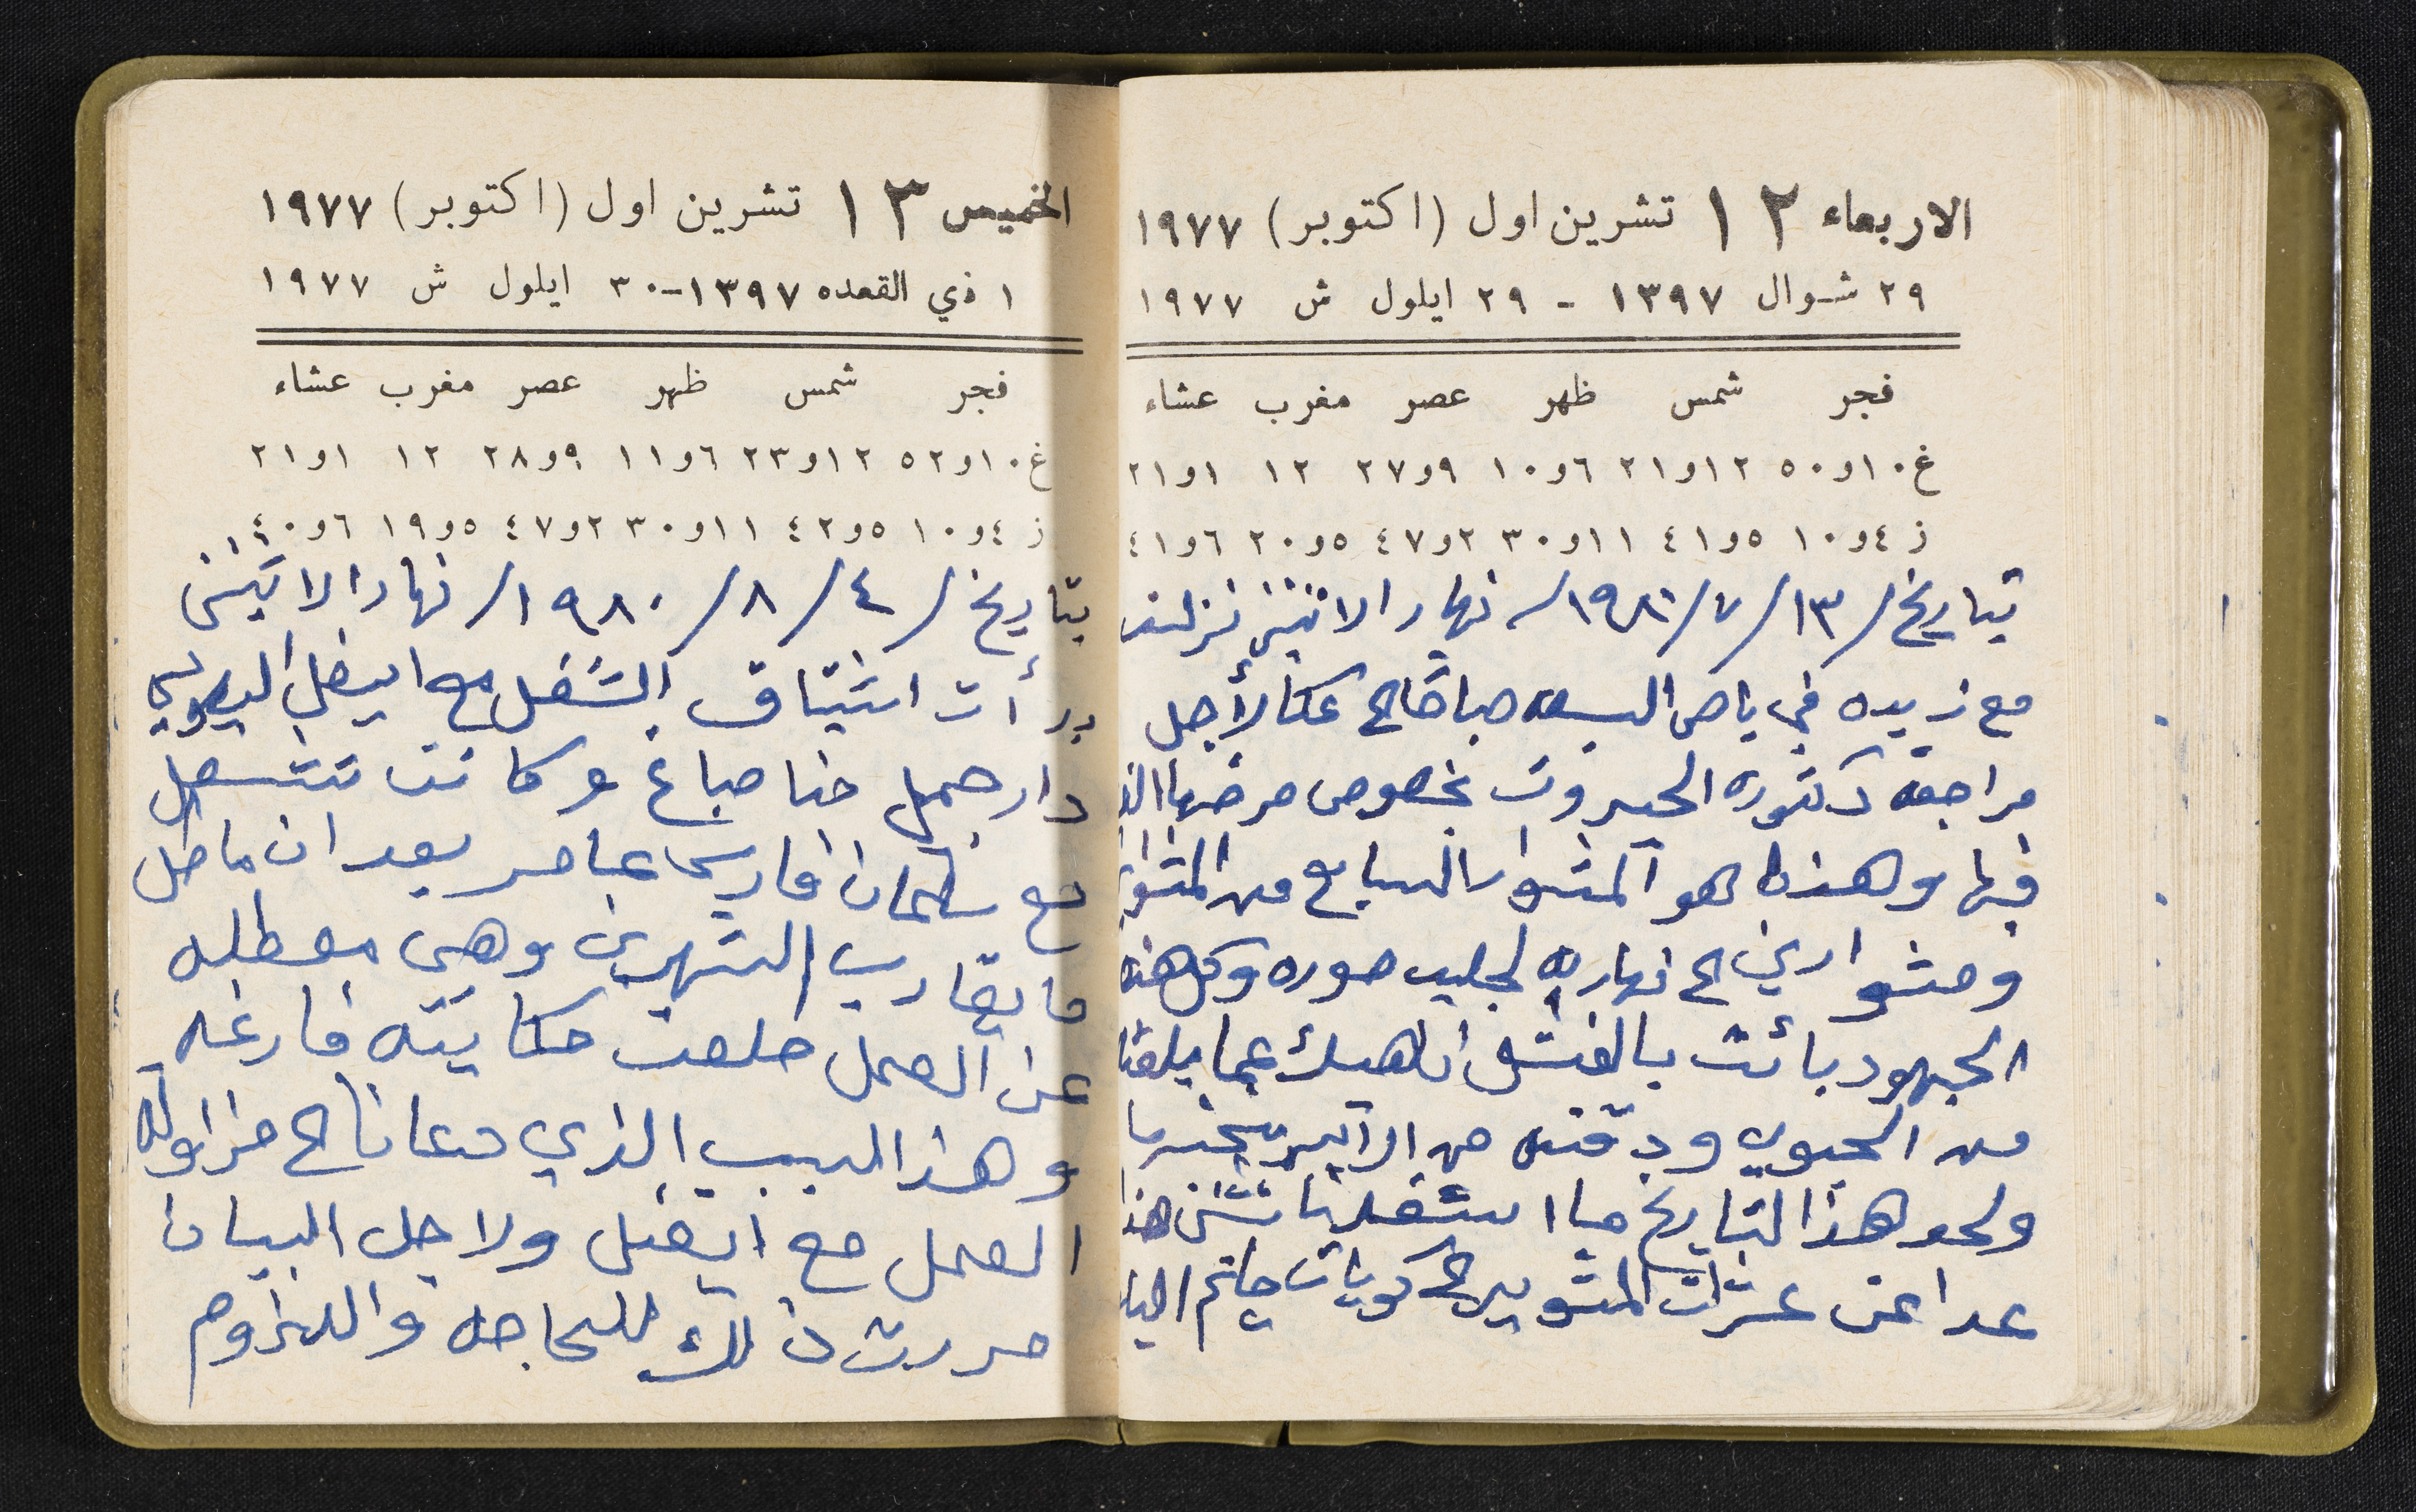 الاربعاء ١٢ تشرين اول (اكتوبر) ١٩٧٧
٢٩ شوال ١٣٩٧ - ٢٩ ايلول ش ١٩٧٧
فجر شمس ظهر عصر مغرب عشاء
غ ١٠و٥٠ ١٢و٢١ ٦و١٠ ٩و٢٧ ١٢ ١و٢١
ز ٤و١٠ ٥و٤١ ١١و٣٠ ٢و٤٧ ٥و٢٠ ٦و٤١
بتاريخ /١٣/٧/١٩٨٠/ نهار الاثنين نزلت
مع زبيده في باص الساعه صباحًا الى عكا لأجل
مراجعة دكتوره الحيروت بخصوص مرضها الذي
فيها وهذا هو المشوار السابع من المشوار
ومشوارين الى نهاريه لجلب صوره وكل هذه
الجهود بائت بالفشل ناهيك عما بلعنا
من الحبوب و
ولحد هذا التاريخ ما استفدنا شئ هذا
عدا عن عشرات المشوير الى كوبات حاتم
الخميس ١٣ تشرين اول (اكتوبر) ١٩٧٧
١ ذي القعده ١٣٩٧-٣٠ ايلول ش ١٩٧٧
فجر شمس ظهر عصر مغرب عشاء
غ ١٠و٥٢ ١٢و٢٣ ٦و١١ ٩و٢٨ ١٢ ١و٢١
ز ٤و١٠ ٥و٤٢ ١١و٣٠ ٢و٤٧ ٥و١٩ ٦و٤٠
بتاريخ /٤/٨/١٩٨٠/ نهار الاثنين
بدأت اشتياق الشغل مع
دار جميل حنا صباغ وكانت تشتغل
مع سلمان فارس عامر بعد ان
ما يقارب الشهرين وهي معطله
عن العمل طلعت حكايته فارغه
وهذا السبب الذي دعانا الى مزاولة
العمل مع ولاجل البيان
حررت ذلك للحاجه واللزوم